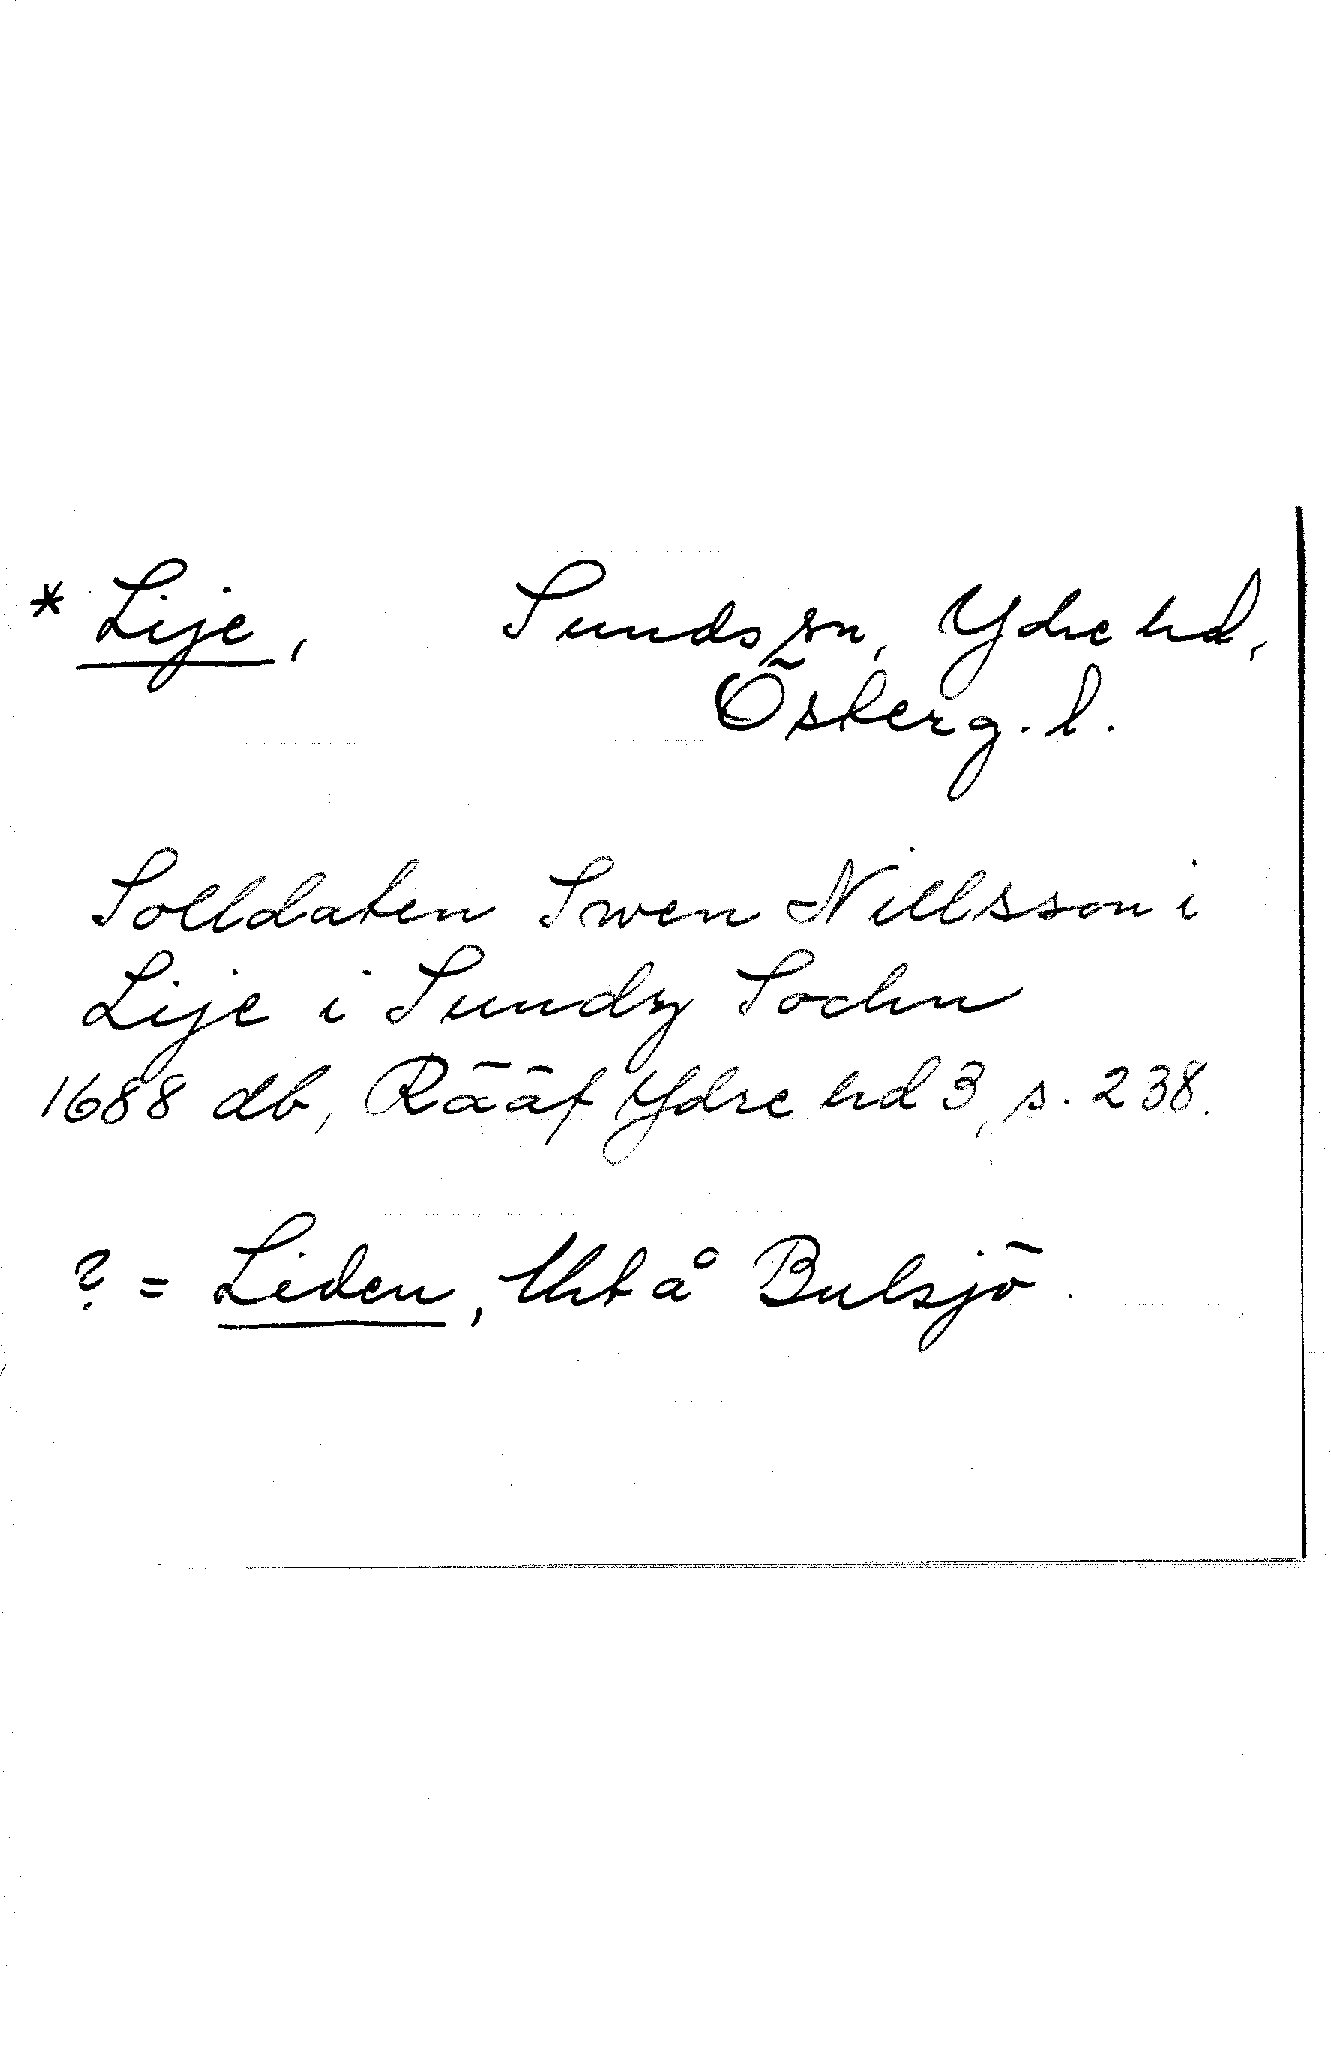 * Lije, Sunds sn, Ydre hd,
Österg. l.
Solldaten Swen Nillsson i
Lije i Sundz Sochn
1688 db, Rääf Ydre hd 3, s. 238.
? = Liden, tht å Bulsjö.